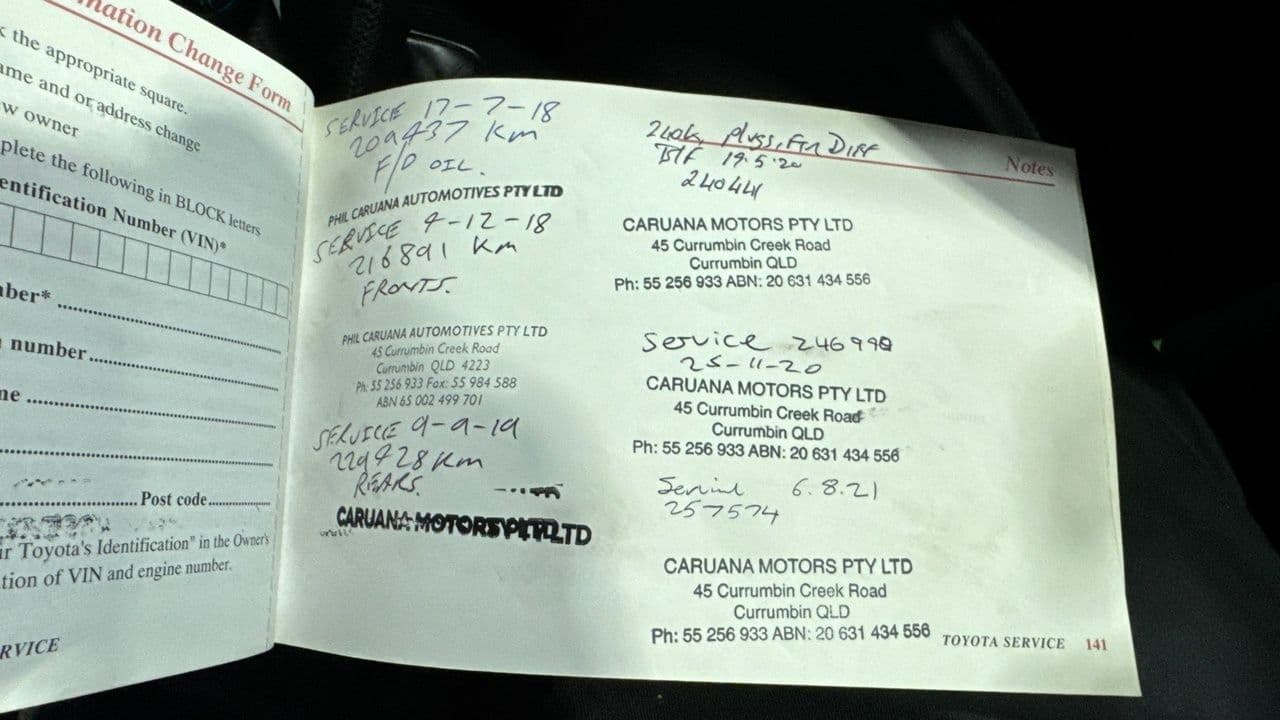 mation Change Form
k the appropriate square.
ame and or address change
w owner
plete the following in BLOCK letters
entification Number (VIN)*
ber*
number
ne
Post code
ir Toyota's Identification" in the Owner's
tion of VIN and engine number.
RVICE
SERVICE 17-7-18
209437 Km
F/D OIL.
PHIL CARUANA AUTOMOTIVES PTY LTD
SERVICE 4-12-18
216891 Km
FRONTS.
PHIL CARUANA AUTOMOTIVES PTY LTD
45 Currumbin Creek Road
Currumbin QLD 4223
Ph: 55 256 933 Fax: 55 984 588
ABN 65 002 499 701
SERVICE 9-9-19
229428 Km
REARS.
CARUANA MOTORS PTY LTD
Notes
240k, Plugs, Ftn Diff
19.5.20
240441
CARUANA MOTORS PTY LTD
45 Currumbin Creek Road
Currumbin QLD
Ph: 55 256 933 ABN: 20 631 434 556
Service 246990
25-11-20
CARUANA MOTORS PTY LTD
45 Currumbin Creek Road
Currumbin QLD
Ph: 55 256 933 ABN: 20 631 434 556
Service 6.8.21
257574
CARUANA MOTORS PTY LTD
45 Currumbin Creek Road
Currumbin QLD
Ph: 55 256 933 ABN: 20 631 434 556
TOYOTA SERVICE 141